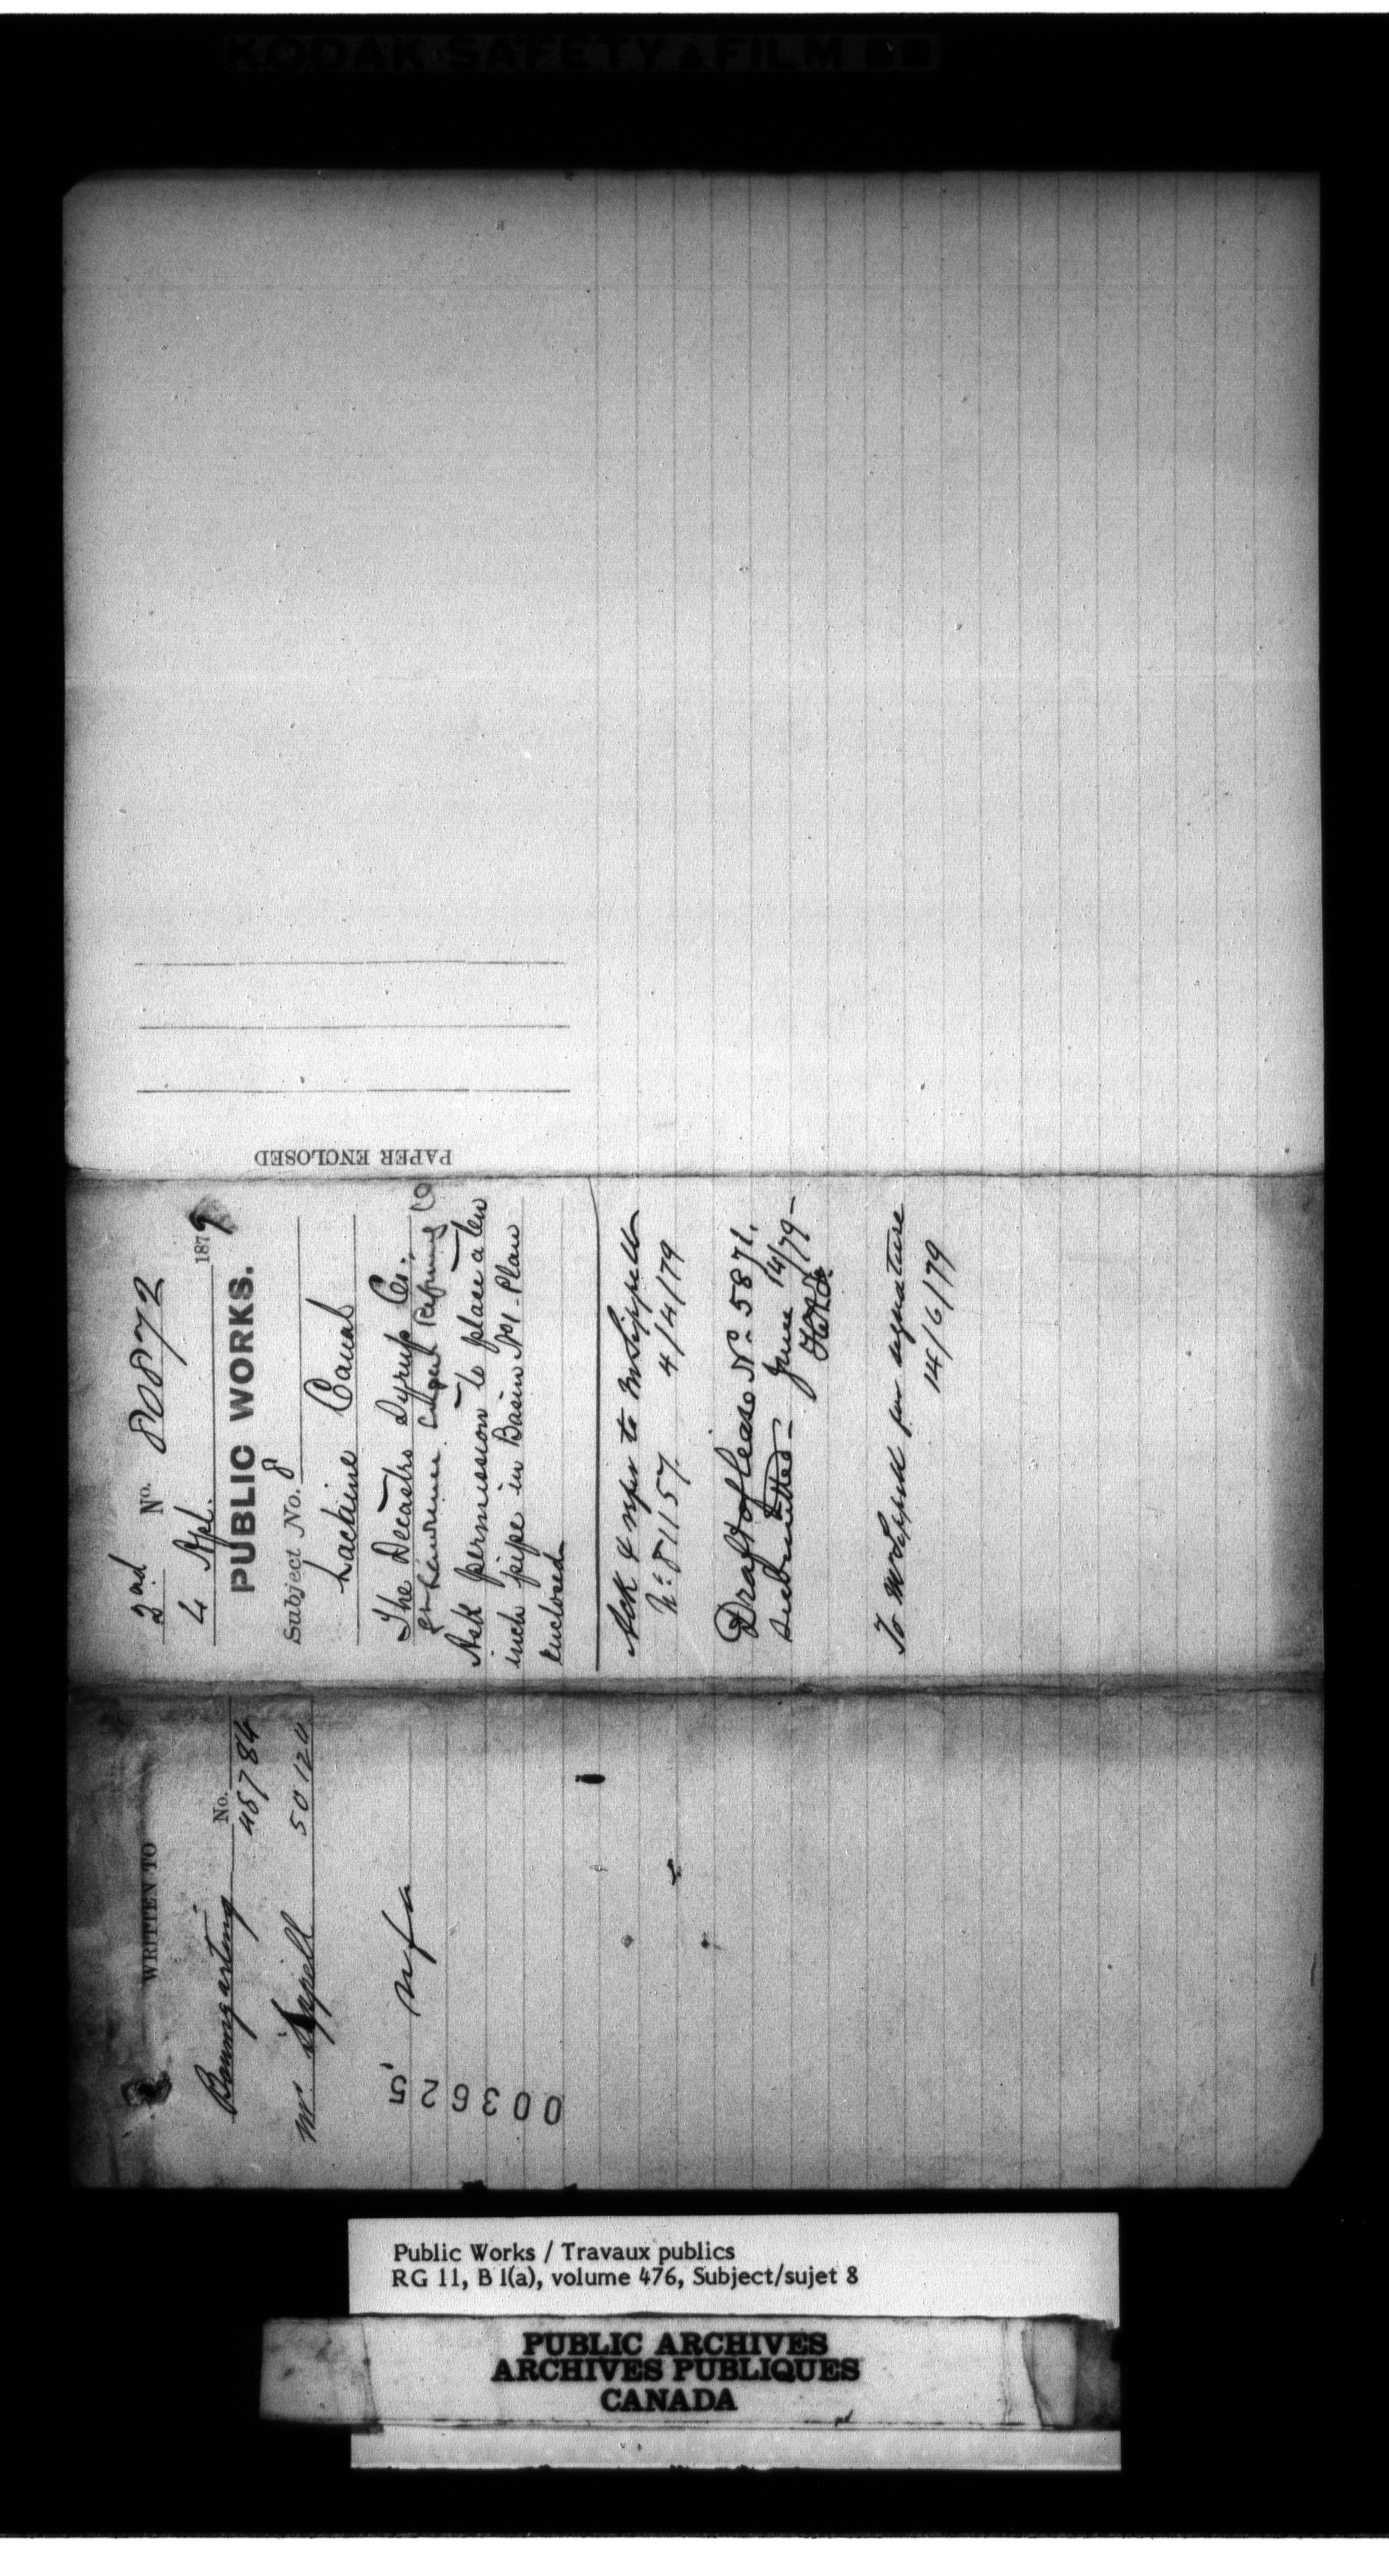 KODAK SAFETY FILM
PAPER ENCLOSED
2nd No. 80872
4 Apl. 1879
PUBLIC WORKS.
Subject No. 8
Lachine Canal
The Decastro Syrup Co.
St Lawrence Sugar Refining Co
Ask permission to place a ten
inch pipe in Basin No 1 - Plan
enclosed
Ack & refer to Mr Sippell
No 81157. 4/4/79
Draft of lease No. 5871.
submitted - June 14/79 -
To Mr Sippell for signature
14/6/79
WRITTEN TO
No.
Baumgarting 45784
Mr. Sippell 50120
nfa
003625
Public Works / Travaux publics
RG 11, B 1(a), volume 476, Subject/sujet 8
PUBLIC ARCHIVES
ARCHIVES PUBLIQUES
CANADA